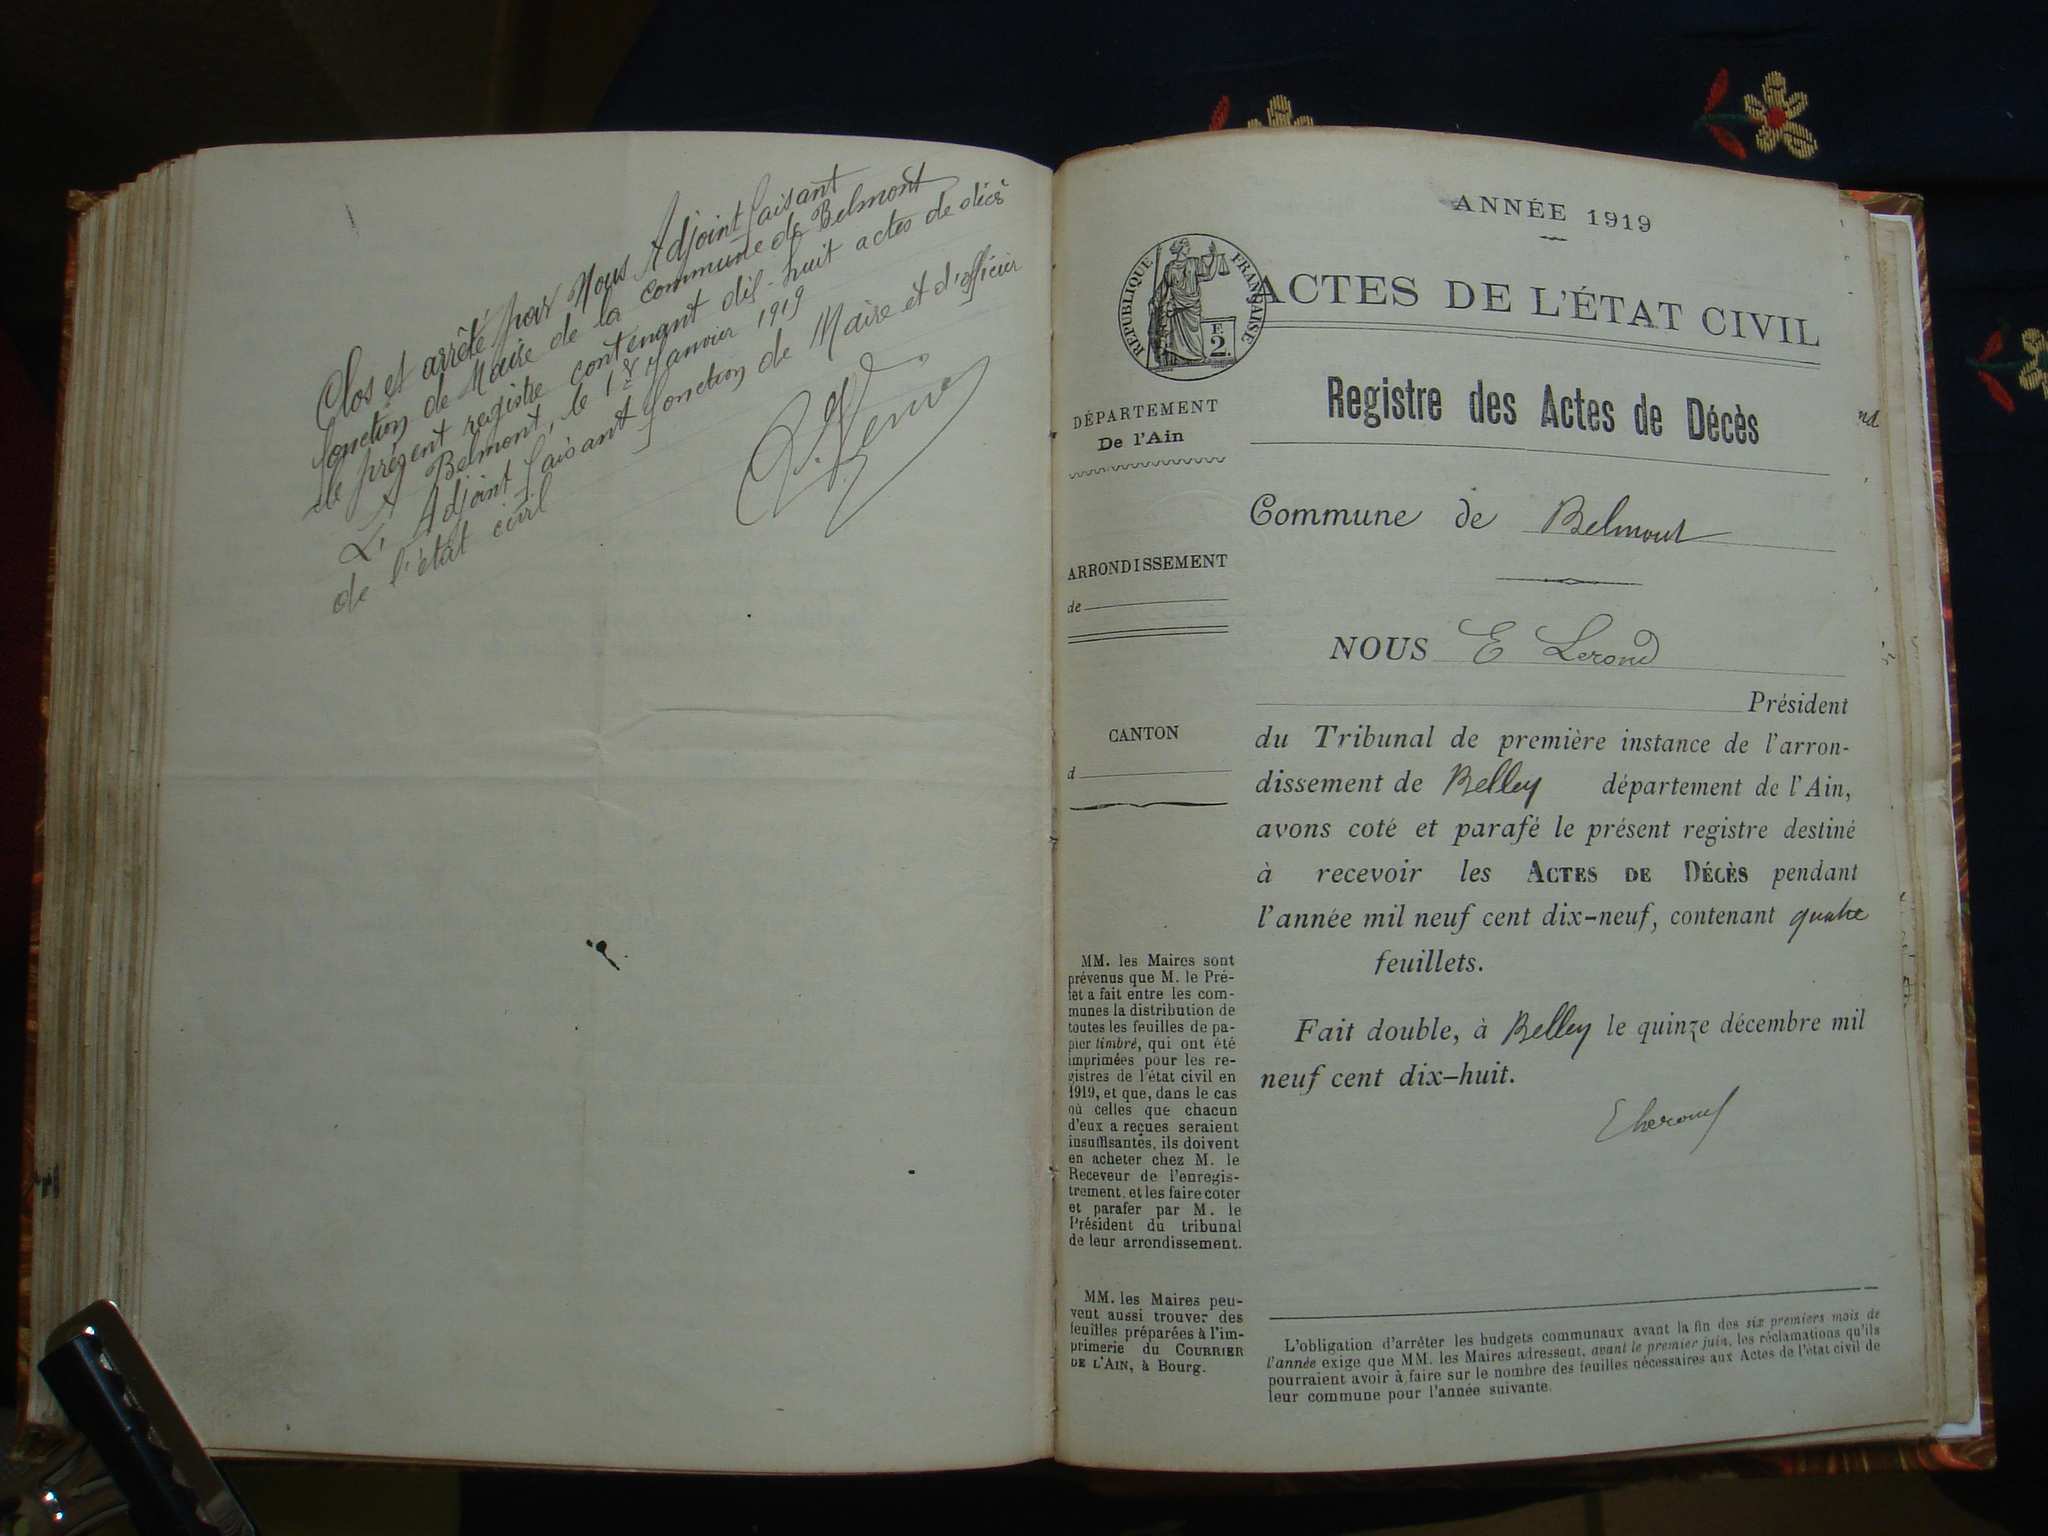 Clos et arrêté par Nous Adjoint faisant
fonction de Maire de la commune de Belmont
le présent registre contenant dix-huit actes de décès
A Belmont, le 1er Janvier 1919
L'Adjoint faisant fonction de Maire et d'officier
de l'état civil
ANNÉE 1919
RÉPUBLIQUE FRANÇAISE
F.
2.
ACTES DE L'ÉTAT CIVIL
Registre des Actes de Décès
DÉPARTEMENT
De l'Ain
Commune de Belmont
ARRONDISSEMENT
de
NOUS E Lerond
Président
CANTON
d
du Tribunal de première instance de l'arron-
dissement de Belley département de l'Ain,
avons coté et parafé le présent registre destiné
à recevoir les ACTES DE DÉCÈS pendant
l'année mil neuf cent dix-neuf, contenant quatre
feuillets.
Fait double, à Belley le quinze décembre mil
neuf cent dix-huit.
MM. les Maires sont
prévenus que M. le Pré-
fet a fait entre les com-
munes la distribution de
toutes les feuilles de pa-
pier timbré, qui ont été
imprimées pour les re-
gistres de l'état civil en
1919, et que, dans le cas
où celles que chacun
d'eux a reçues seraient
insuffisantes, ils doivent
en acheter chez M. le
Receveur de l'enregis-
trement, et les faire coter
et parafer par M. le
Président du tribunal
de leur arrondissement.
MM. les Maires peu-
vent aussi trouver des
feuilles préparées à l'im-
primerie du COURRIER
DE L'AIN, à Bourg.
L'obligation d'arrêter les budgets communaux avant la fin des six premiers mois de
l'année exige que MM. les Maires adressent, avant le premier juin, les réclamations qu'ils
pourraient avoir à faire sur le nombre des feuilles nécessaires aux Actes de l'état civil de
leur commune pour l'année suivante.